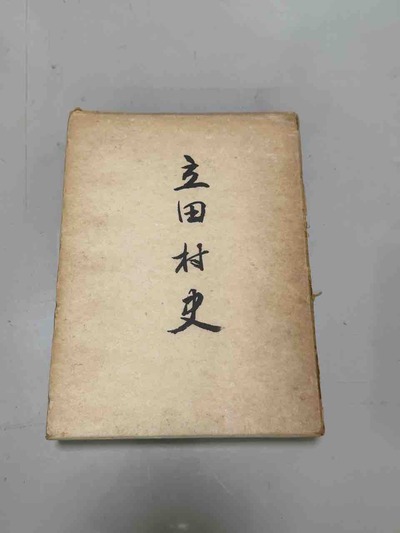 立田村史